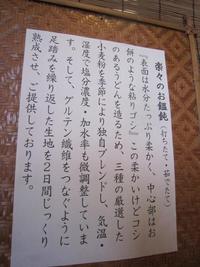 楽々のお饂飩（打ちたて・茹でたて）
『表面は水分たっぷり柔かく、中心部はお
餅のような粘りゴシ』この柔かいけどコシ
のあるうどんを造るため、三種の厳選した
小麦粉を季節により独自ブレンドし、気温・
湿度で塩分濃度、加水率も微調整していま
す。そして、グルテン繊維をつなぐように
足踏みを繰り返した生地を２日間じっくり
熟成させ、ご提供しております。